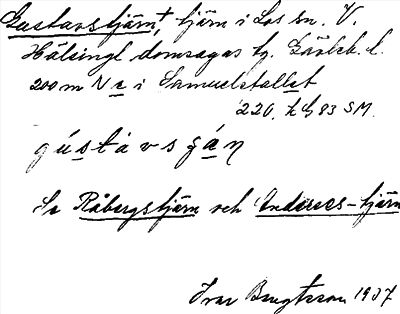 Gustavstjärn†, tjärn i Los sn. V.
Hälsingl. domsagas tg. Gävleb. l.
200 m N e i Samuelstallet
220. h 83 SM.
gústàvsgán
Se Råbergstjärn och Anderses-tjärn
Ivar Bengtsson 1937